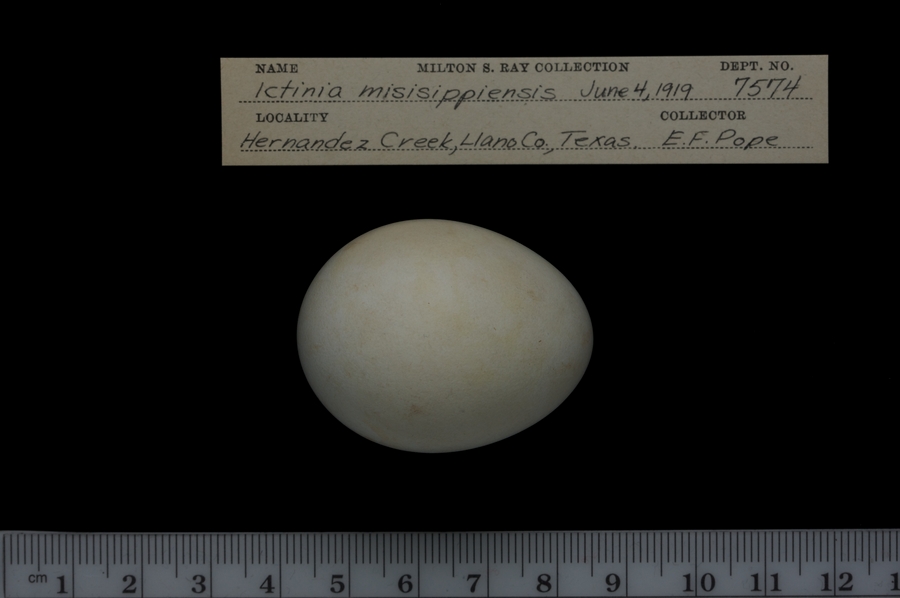 NAME MILTON S. RAY COLLECTION DEPT. NO.
Ictinia misisippiensis June 4, 1919 7574
LOCALITY COLLECTOR
Hernandez Creek, Llano Co., Texas. E. F. Pope
cm 1 2 3 4 5 6 7 8 9 10 11 12 1